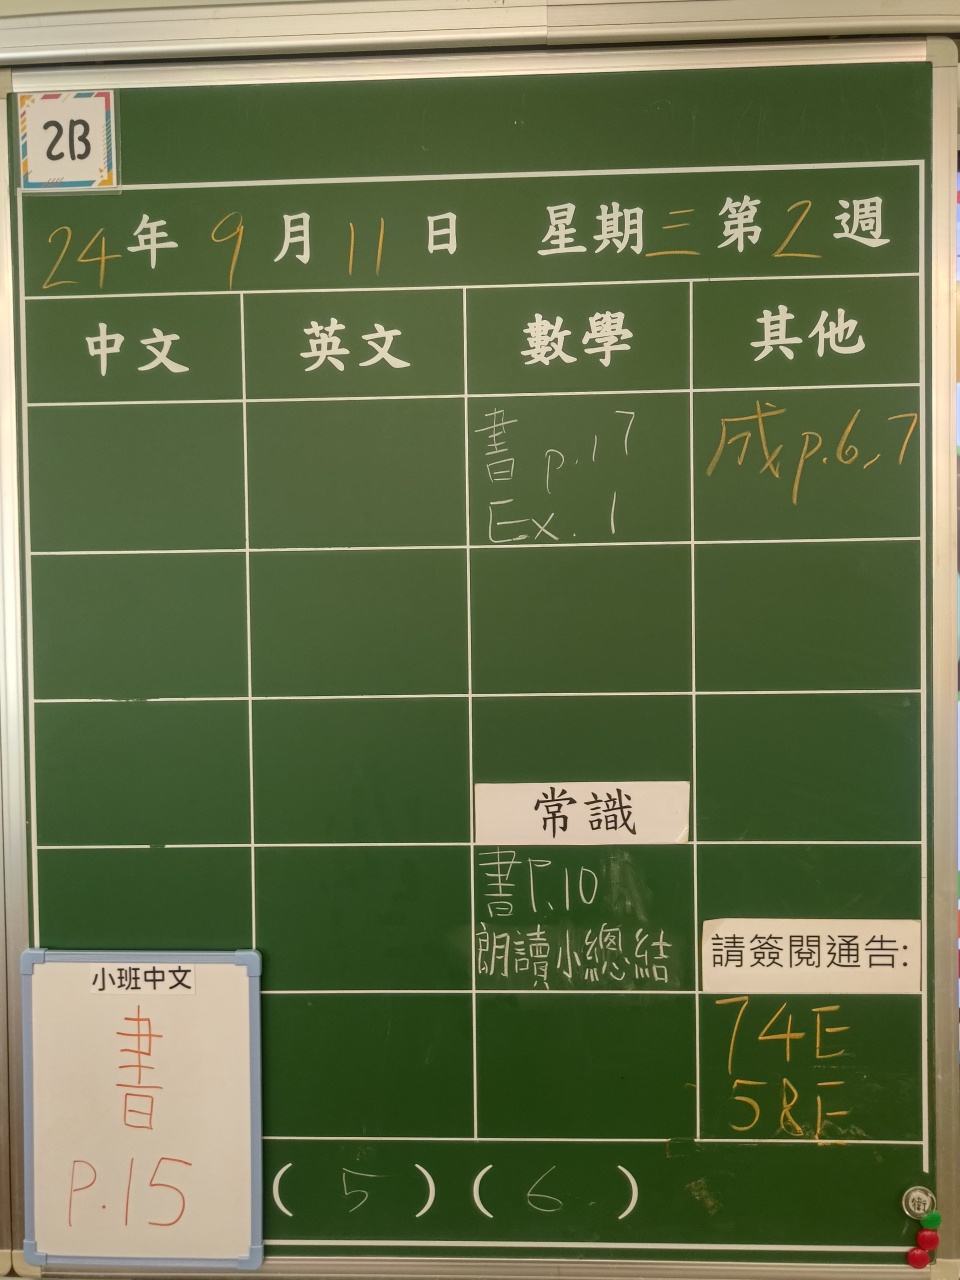 2B
24年 9月 11日 星期三 第2週
中文 英文 數學 其他
書 p.17
Ex. 1
成 p.6,7
常識
書P.10
朗讀小總結
請簽閱通告:
74E
58E
小班中文
書
P.15
( 5 ) ( 6 )